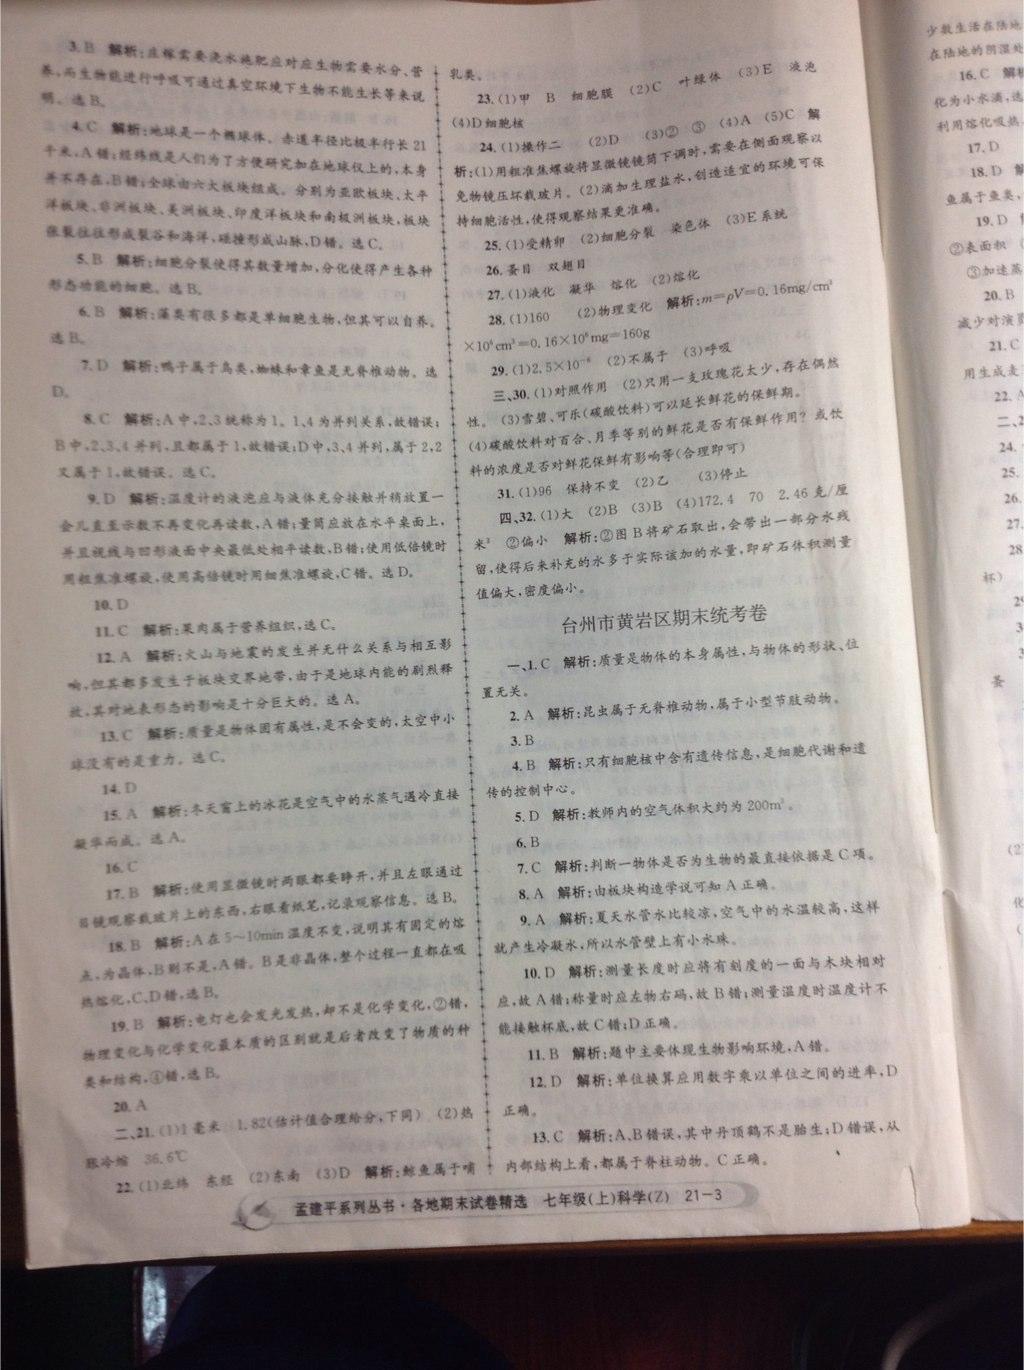 3. B 解析:庄稼需要浇水施肥应对应生物需要水分、营
养,而生物能进行呼吸可通过真空环境下生物不能生长等来说
明。选 B。
4. C 解析:地球是一个椭球体。赤道半径比极半行长 21
千米,A 错;经纬线是人们为了方便研究加在地球仪上的,本身
并不存在,B 错;全球由六大板块组成。分别为亚欧板块、太平
洋板块、非洲板块、美洲板块、印度洋板块和南极洲板块,板块
张裂往往形成裂谷和海洋,碰撞形成山脉,D 错。选 C。
5. B 解析:细胞分裂使得其数量增加,分化使得产生各种
形态功能的细胞。选 B。
6. B 解析:藻类有很多都是单细胞生物,但其可以自养。
选 B。
7. D 解析:鸭子属于鸟类,蜘蛛和章鱼是无脊椎动物。选
D。
8. C 解析:A 中,2、3 统称为 1。1、4 为并列关系,故错误;
B 中,2、3、4 并列,且都属于 1,故错误;D 中,3、4 并列,属于 2,2
又属于 1,故错误。选 C。
9. D 解析:温度计的液泡应与液体充分接触并稍放置一
会儿直至示数不再变化再读数,A 错;量筒应放在水平桌面上,
并且视线与凹形液面中央最低处相平读数,B 错;使用低倍镜时
用粗焦准螺旋,使用高倍镜时用细焦准螺旋,C 错。选 D。
10. D
11. C 解析:果肉属于营养组织,选 C。
12. A 解析:火山与地震的发生并无什么关系与相互影
响,但其都多发生于板块交界地带,由于是地球内能的剧烈释
放,其对地表形态的影响是十分巨大的。选 A。
13. C 解析:质量是物体固有属性,是不会变的,太空中小
球没有的是重力。选 C。
14. D
15. A 解析:冬天窗上的冰花是空气中的水蒸气遇冷直接
凝华而成。选 A。
16. C
17. B 解析:使用显微镜时两眼都要睁开,并且左眼通过
目镜观察载玻片上的东西,右眼看纸笔,记录观察信息。选 B。
18. B 解析:A 在 5~10min 温度不变,说明其有固定的熔
点,为晶体,B 则不是,A 错。B 是非晶体,整个过程一直都在吸
热熔化,C、D 错,选 B。
19. B 解析:电灯也会发光发热,却不是化学变化,②错,
物理变化与化学变化最本质的区别就是后者改变了物质的种
类和结构,④错,选 B。
20. A
二、21. (1)1 毫米 1.82(估计值合理给分,下同) (2)热
胀冷缩 36.6℃
22. (1)北纬 东经 (2)东南 (3)D 解析:鲸鱼属于哺
乳类。
23. (1)甲 B 细胞膜 (2)C 叶绿体 (3)E 液泡
(4)D 细胞核
24. (1)操作二 (2)D (3)② ③ (4)A (5)C 解
析:(1)用粗准焦螺旋将显微镜镜筒下调时,需要在侧面观察以
免物镜压坏载玻片。(2)滴加生理盐水,创造适宜的环境可保
持细胞活性,使得观察结果更准确。
25. (1)受精卵 (2)细胞分裂 染色体 (3)E 系统
26. 蚤目 双翅目
27. (1)液化 凝华 熔化 (2)熔化
28. (1)160 (2)物理变化 解析:m=ρV=0.16mg/cm³
×10⁶cm³=0.16×10⁶mg=160g
29. (1)2.5×10⁻⁶ (2)不属于 (3)呼吸
三、30. (1)对照作用 (2)只用一支玫瑰花太少,存在偶然
性。 (3)雪碧、可乐(碳酸饮料)可以延长鲜花的保鲜期。
(4)碳酸饮料对百合、月季等别的鲜花是否有保鲜作用?或饮
料的浓度是否对鲜花保鲜有影响等(合理即可)
31. (1)96 保持不变 (2)乙 (3)停止
四、32. (1)大 (2)B (3)B (4)172.4 70 2.46 克/厘
米³ ②偏小 解析:②图 B 将矿石取出,会带出一部分水残
留,使得后来补充的水多于实际该加的水量,即矿石体积测量
值偏大,密度偏小。
台州市黄岩区期末统考卷
一、1. C 解析:质量是物体的本身属性,与物体的形状、位
置无关。
2. A 解析:昆虫属于无脊椎动物,属于小型节肢动物。
3. B
4. B 解析:只有细胞核中含有遗传信息,是细胞代谢和遗
传的控制中心。
5. D 解析:教师内的空气体积大约为 200m³。
6. B
7. C 解析:判断一物体是否为生物的最直接依据是 C 项。
8. A 解析:由板块构造学说可知 A 正确。
9. A 解析:夏天水管水比较凉,空气中的水温较高,这样
就产生冷凝水,所以水管壁上有小水珠。
10. D 解析:测量长度时应将有刻度的一面与木块相对
应,故 A 错;称量时应左物右码,故 B 错;测量温度时温度计不
能接触杯底,故 C 错;D 正确。
11. B 解析:题中主要体现生物影响环境,A 错。
12. D 解析:单位换算应用数字乘以单位之间的进率,D
正确。
13. C 解析:A、B 错误,其中丹顶鹤不是胎生;D 错误,从
内部结构上看,都属于脊柱动物。C 正确。
孟建平系列丛书·各地期末试卷精选 七年级(上)科学(Z) 21-3
少数生活在陆地
在陆地的阴湿处
16. C 解析
化为小水滴,选
利用熔化吸热,
17. D
18. D
鱼属于鱼类,
19. D
②表面积
③加速蒸
20. B
减少对演员
21. C
用生成麦
22. A
二、2
24.
25.
26.
27.
28
杯)
29
3
蚤
(2)
化